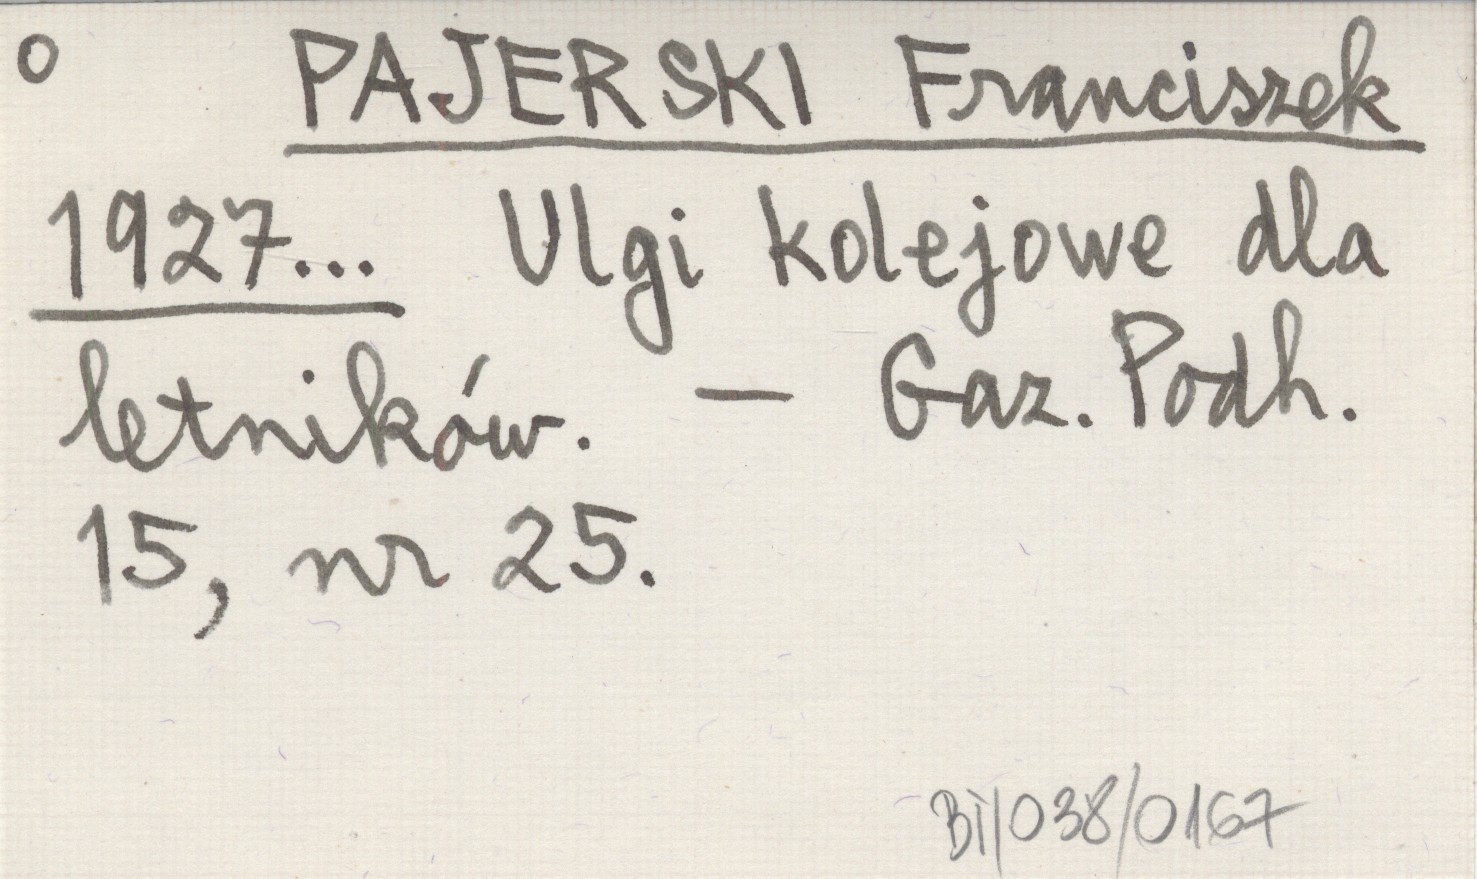 o PAJERSKI Franciszek
1927... Ulgi kolejowe dla
letników. — Gaz. Podh.
15, nr 25.
BI/038/0167